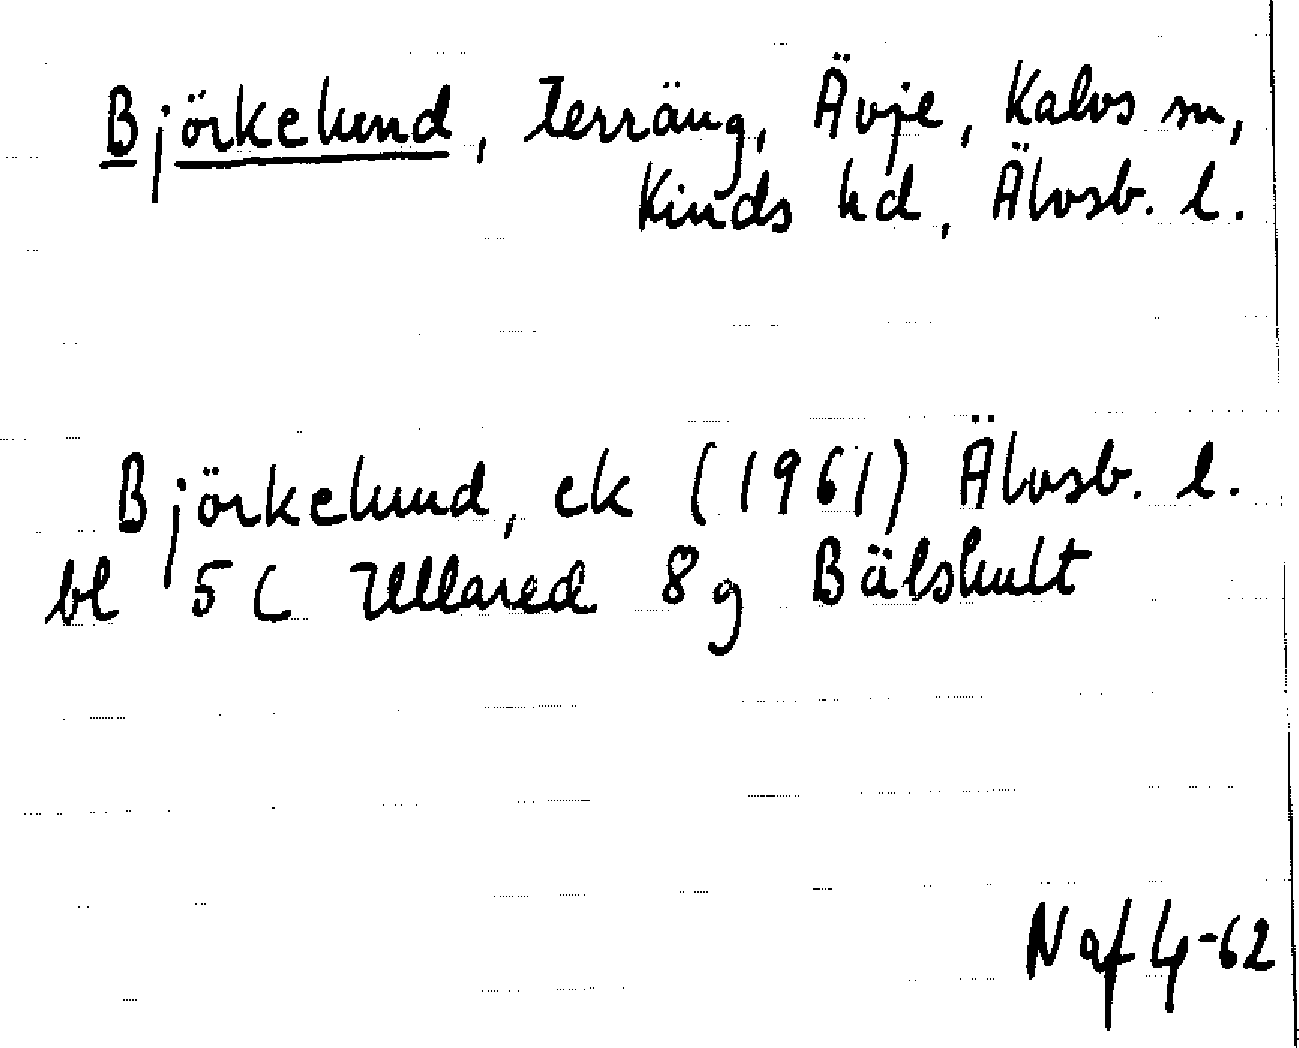 Björkelund, Terräng, Ävje, Kalvs sn,
Kinds hd, Älvsb. l.
Björkelund, ek (1961) Älvsb. l.
bl 5C Ullared 8g Bälshult
Naf 4-62